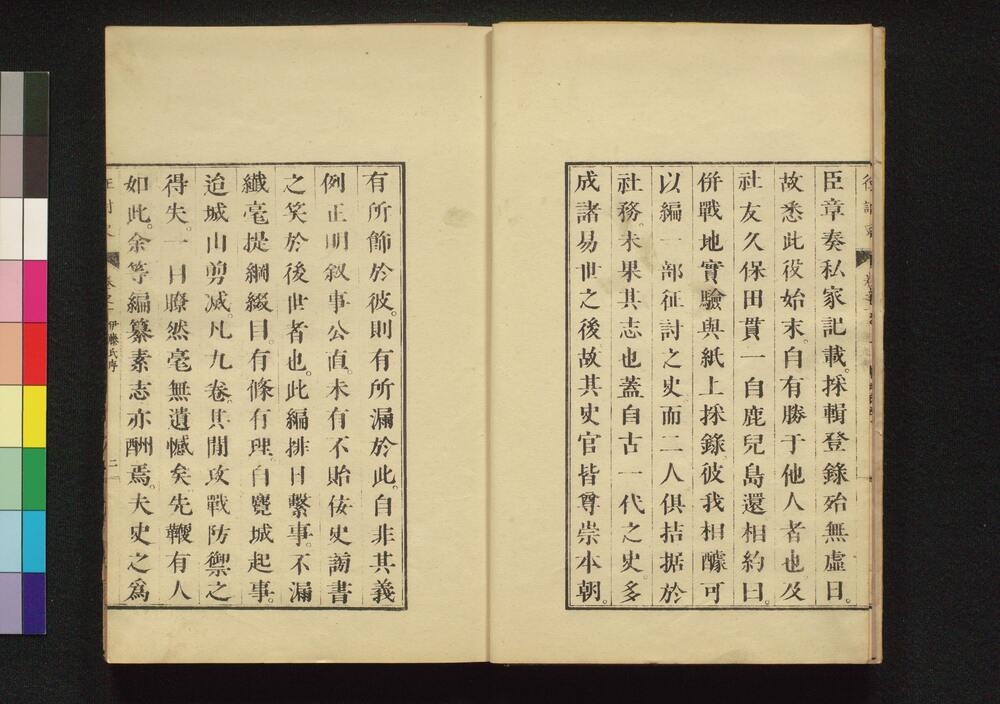 臣章奏私家記載。採輯登錄殆無虛日。
故悉此役始末。自有勝于他人者也。及
社友久保田貫一自鹿兒島還相約曰。
併戰地實驗與紙上採錄彼我相醵可
以編一部征討之史而二人俱拮据於
社務。未果其志也蓋自古一代之史。多
成諸易世之後故其史官皆尊崇本朝。
有所飾於彼。則有所漏於此。自非其義
例正明叙事公直。未有不貽佞史謗書
之笑於後世者也。此編排日繫事。不漏
纖毫提綱綴目。有條有理。自甕城起事。
迨城山剪滅。凡九卷。其間攻戰防禦之
得失。一目瞭然毫無遺憾矣先鞭有人
如此。余等編纂素志亦酬焉。夫史之爲
伊藤氏序
二